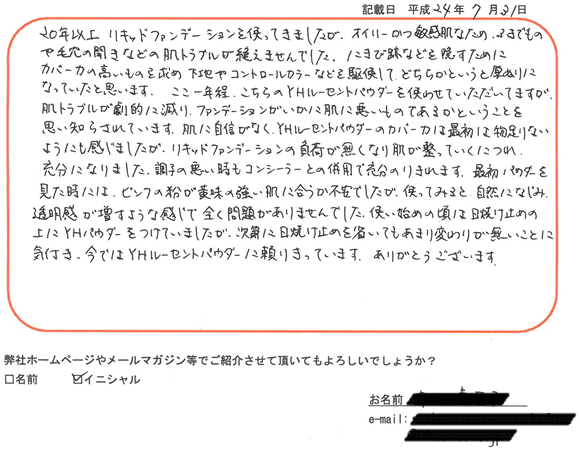 記載日 平成24年7月31日
20年以上 リキッドファンデーションを使ってきましたが、オイリーかつ敏感肌なため、ふきでもの
や毛穴の開きなどの肌トラブルが絶えませんでした。にきび跡などを隠すために
カバー力の高いものを求め 下地やコントロールカラーなどを駆使して、どちらかというと厚ぬりに
なっていたと思います。ここ一年程、こちらのYHルーセントパウダーを使わせていただいてますが、
肌トラブルが劇的に減り、ファンデーションがいかに肌に悪いものであるかということを
思い知らされています。肌に自信がなく、YHルーセントパウダーのカバー力は最初は物足りない
ようにも感じましたが、リキッドファンデーションの負荷が無くなり肌が整っていくにつれ、
充分になりました。調子の悪い時もコンシーラーとの併用で充分のりきれます。最初パウダーを
見た時には、ピンクの粉が黄味の強い肌に合うか不安でしたが、使ってみると、自然になじみ、
透明感が増すような感じで全く問題がありませんでした。使い始めの頃は日焼け止めの
上にYHパウダーをつけていましたが、次第に日焼け止めを省いてもあまり変わりが無いことに
気付き、今ではYHルーセントパウダーに頼りきっています。ありがとうございます。
弊社ホームページやメールマガジン等でご紹介させて頂いてもよろしいでしょうか？
□名前 ☑イニシャル
お名前
e-mail: